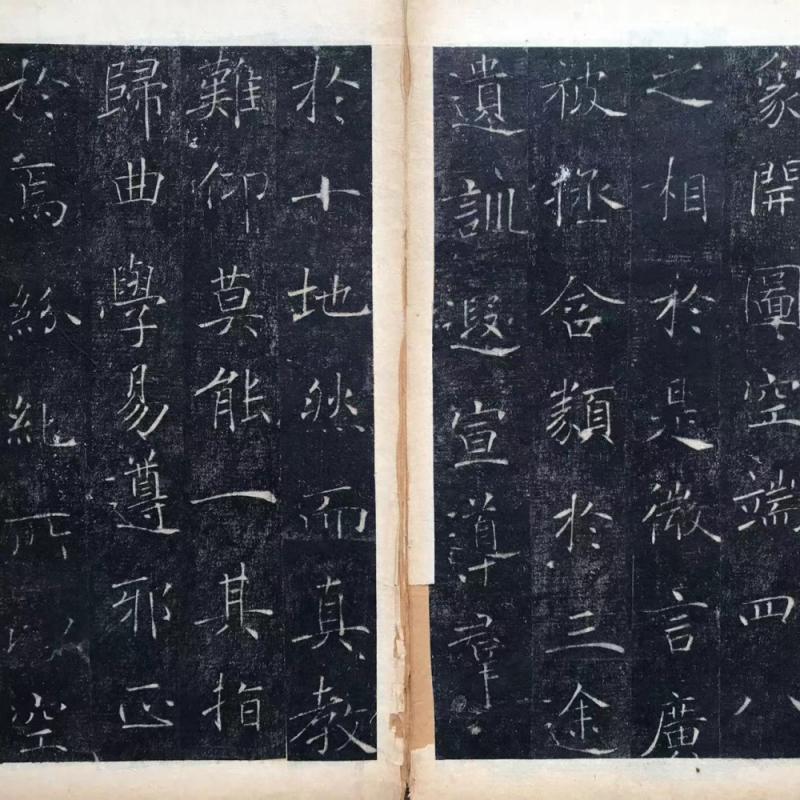 象開圖空端四八
之相於是微言廣
被拯含類於三途
遺訓遐宣導羣
於十地然而真教
難仰莫能一其指
歸曲學易遵邪正
於焉紛糺所以空